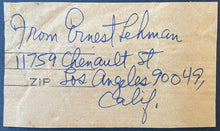 From Ernest Lehman
11759 Chenault St
ZIP Los Angeles 90049,
Calif.